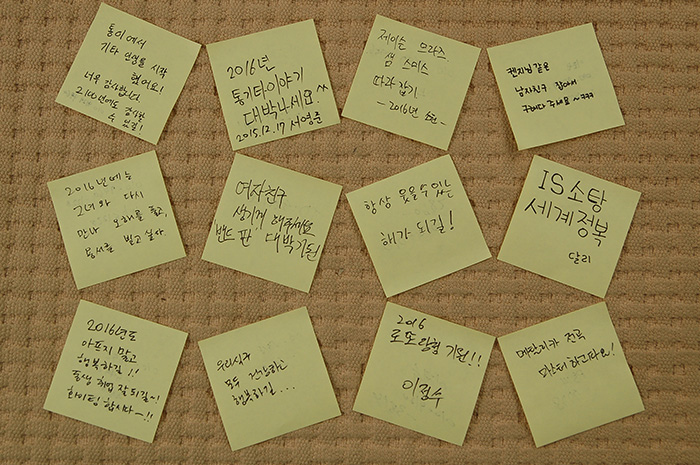 통이에서
기타 인생을 시작
했어요!
너무 감사합니다
2100년에도 감사할
수 있길!
2016년
통기타이야기
대박나세요 ^^
2015.12.17 서영준
제이슨 므라즈
샘 스미스
따라잡기
-2016년
켄지님같은
남자친구 잡아서
구해다 주세요~ㅋㅋㅋ
2016년에는
그녀와 다시
만나 오해를 풀고,
용서를 빌고 싶다.
여자친구
생기게 해주세요
밴드 판 대박기원
항상 웃을 수 있는
해가 되길!
IS소탕
세계정복
달리
2016년도
아프지 말고
행복하길!!
동생 취업 잘 되길~!
화이팅 합시다~!!
우리식구
모두 건강하고
행복하길...
2016
로또일등 기원!!
이정수
메탈리카 전곡
마스터하고파요!